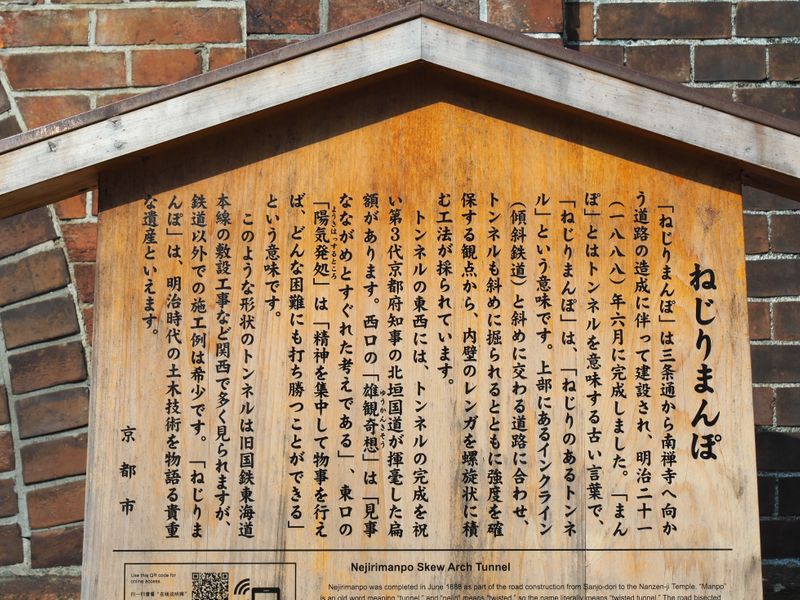 ねじりまんぽ
「ねじりまんぽ」は三条通から南禅寺へ向か
う道路の造成に伴って建設され、明治二十一
(一八八八)年六月に完成しました。「まん
ぽ」とはトンネルを意味する古い言葉で、
「ねじりまんぽ」は、「ねじりのあるトンネ
ル」という意味です。上部にあるインクライン
(傾斜鉄道)と斜めに交わる道路に合わせ、
トンネルも斜めに掘られるとともに強度を確
保する観点から、内壁のレンガを螺旋状に積
む工法が採られています。
トンネルの東西には、トンネルの完成を祝
い第3代京都府知事の北垣国道が揮毫した扁
額があります。西口の「雄観奇想」は「見事
ゆうかんきそう
なながめとすぐれた考えである」、東口の
「陽気発処」は「精神を集中して物事を行え
ようきはっするところ
ば、どんな困難にも打ち勝つことができる」
という意味です。
このような形状のトンネルは旧国鉄東海道
本線の敷設工事など関西で多く見られますが、
鉄道以外での施工例は希少です。「ねじりま
んぽ」は、明治時代の土木技術を物語る貴重
な遺産といえます。
京都市
Nejirimanpo Skew Arch Tunnel
Nejirimanpo was completed in June 1888 as part of the road construction from Sanjo-dori to the Nanzen-ji Temple. "Manpo"
is an old word meaning "tunnel," and "nejiri" means "twisted," so the name literally means "twisted tunnel." The road bisected
Use this QR code for
online access.